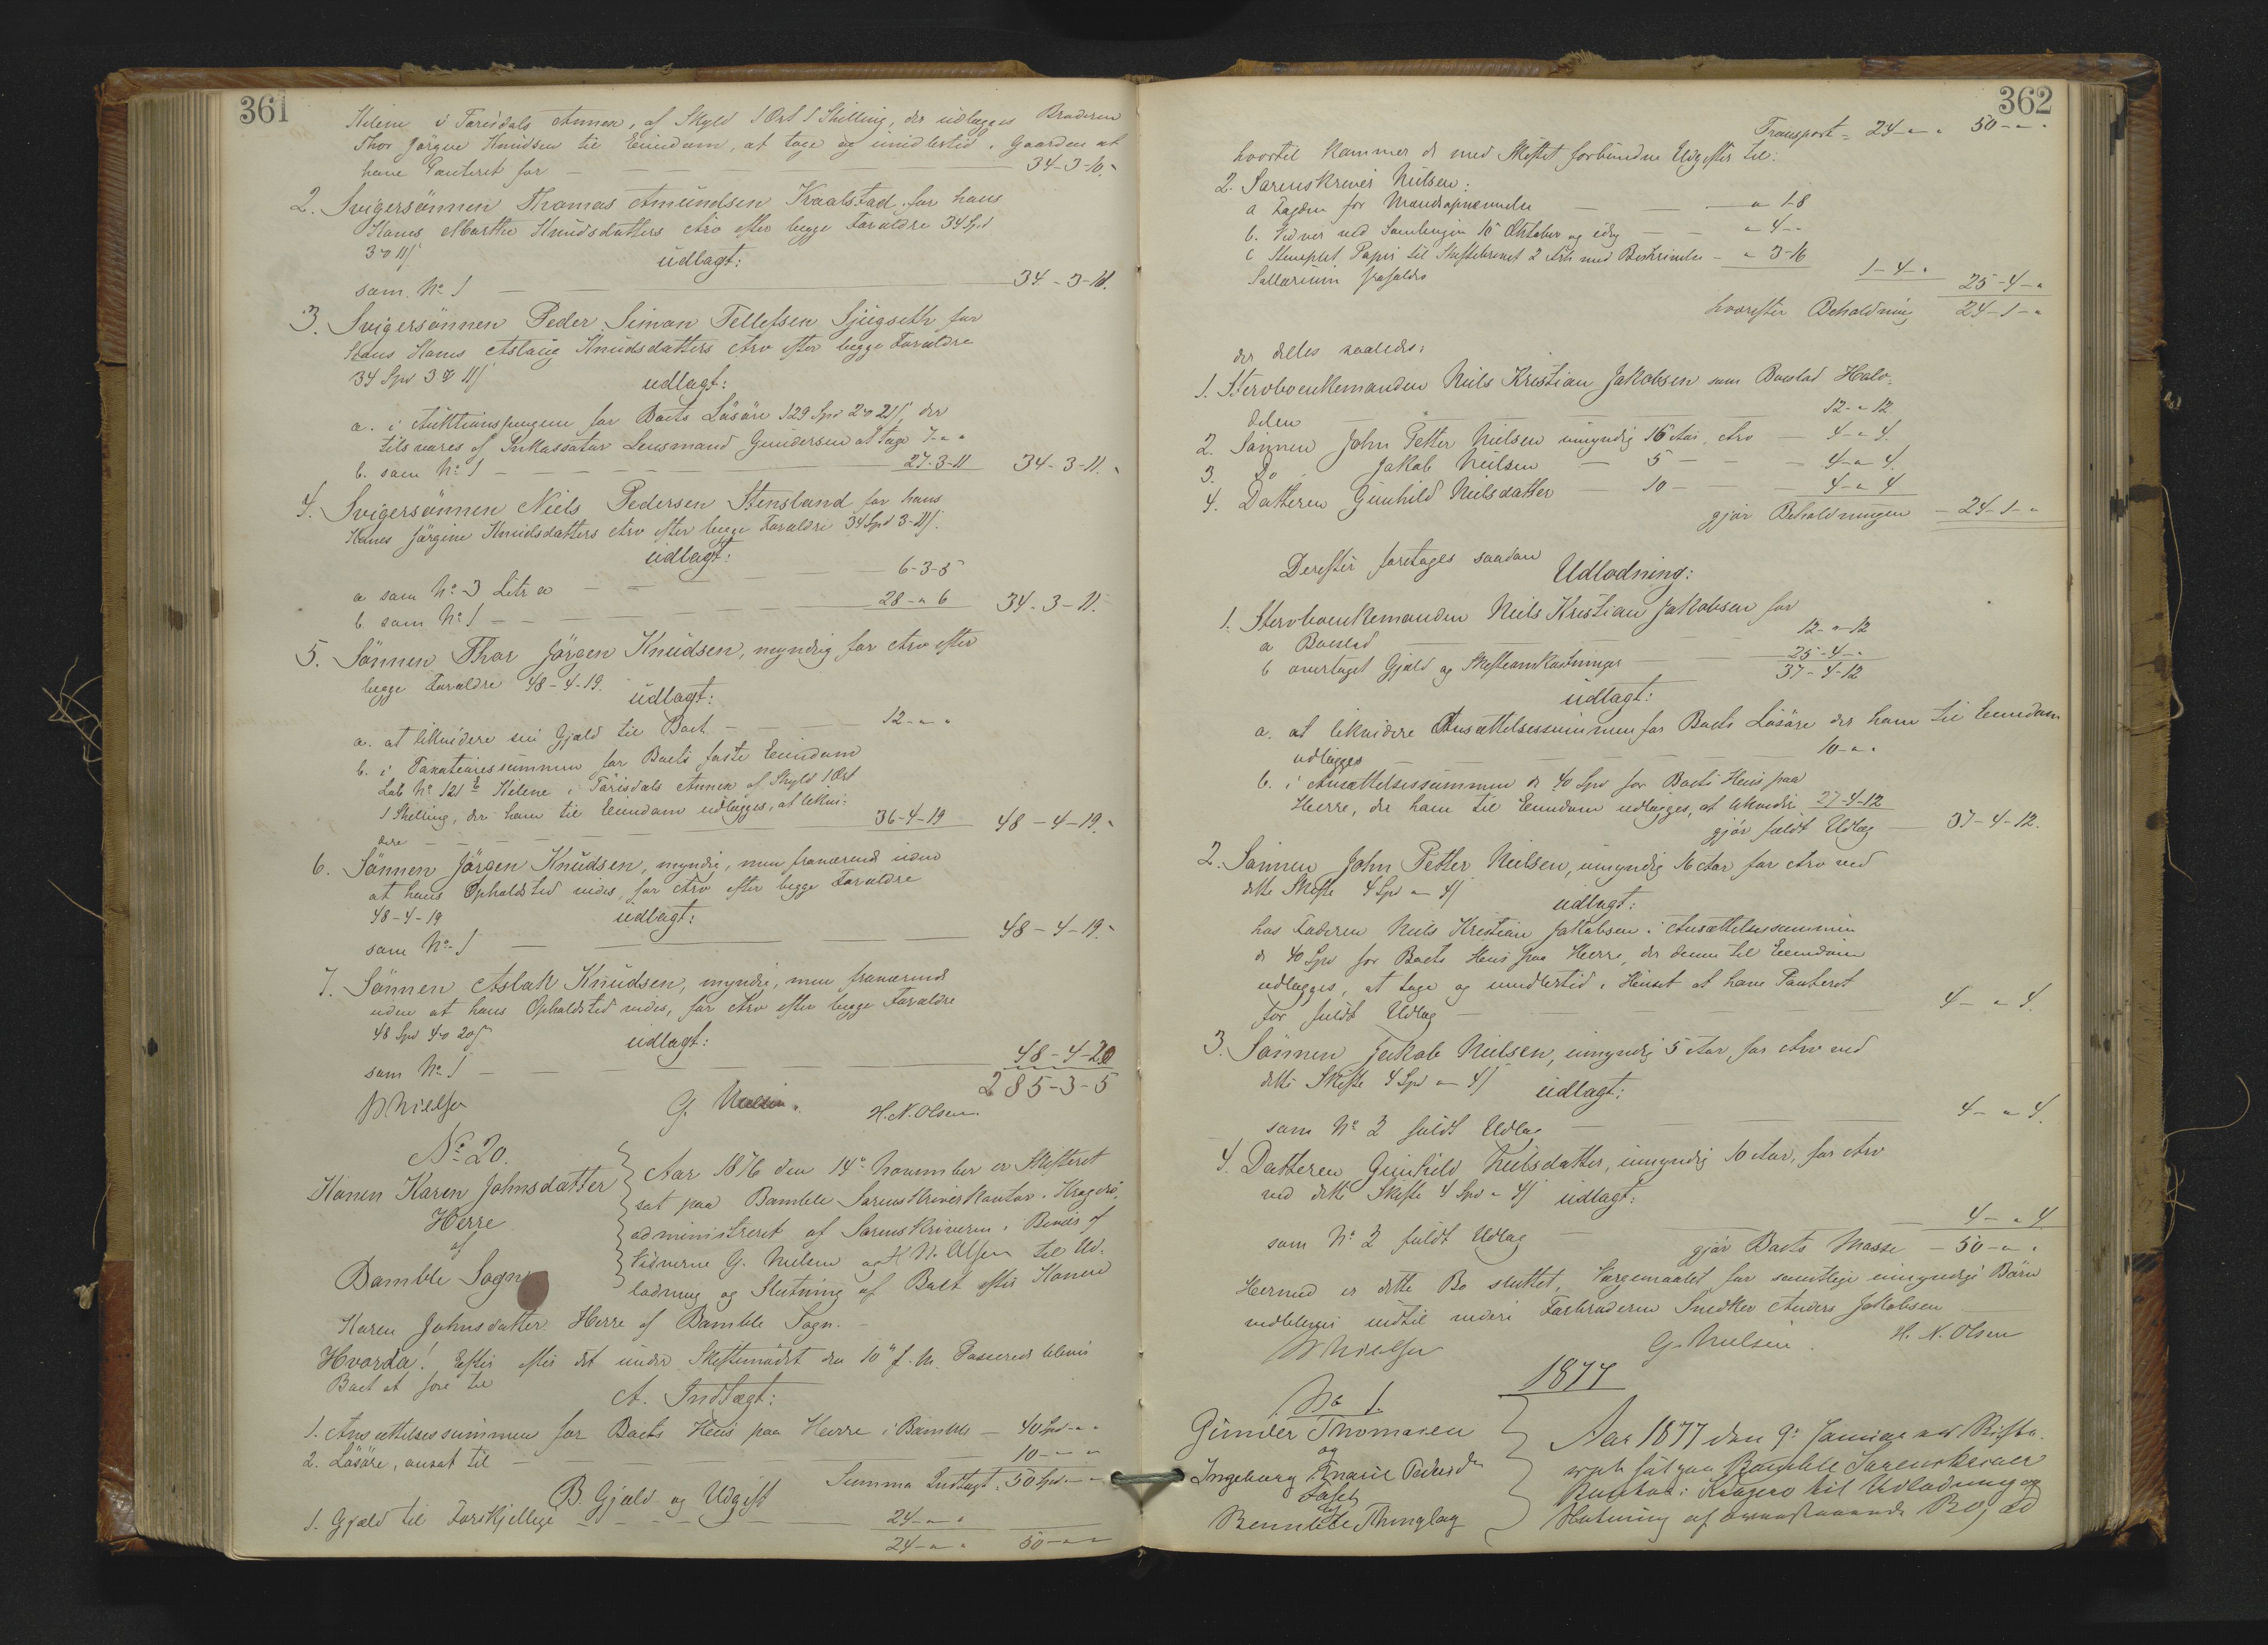 361
Kilene i Tørisdals Annex, af Skyld 1 Ort 1 Skilling, der udlægges Broderen
Thor Jörgen Knudsen til Eiendom, at tage og imidlertid i Gaarden at
have Panteret for — 34-3-10.
2. Svigersönnen Thomas Amundsen Kraalstad for hans
Kones Marthe Knudsdatters Arv efter begge Forældre 34 Spd
3 o 11 s
udlagt:
som No 1 — 34-3-11.
3. Svigersönnen Peder Simon Tellefsen Sjugseth for
hans Kones Aslaug Knudsdatters Arv efter begge Forældre
34 Spd 3 o 11 s
udlagt:
a. i Auktionspengene for Boets Lösöre 129 Spd 2 o 21 s, der
tilsvares af Inkassator Lensmand Gundersen at tage 7-"-"
b. som No 1 — 27-3-11 34-3-11.
4. Svigersönnen Niels Pedersen Stensland for hans
Kones Jörgine Knudsdatters Arv efter begge Forældre 34 Spd 3-11 s.
udlagt:
a som No 3 Litr a — 6-3-5
b. som No 1 — 28-"-6 34-3-11.
5. Sönnen Thor Jörgen Knudsen, myndig for Arv efter
begge Forældre 48-4-19.
udlagt:
a. at likvidere sin Gjæld til Boet — 12-"-"
b. i Taxationssummen for Boets faste Eiendom
Lob No 121 b Kilene i Törisdals Annex af Skyld 1 Ort
1 Skilling, der ham til Eiendom udlægges, at likvi-
dere — 36-4-19 48-4-19.
6. Sönnen Jörgen Knudsen, myndig, men fraværende uden
at hans Opholdsted vides, for Arv efter begge Forældre
48-4-19
udlagt:
som No 1 — 48-4-19.
7. Sönnen Aslak Knudsen, myndig, men fraværende
uden at hans Opholdsted vides, for Arv efter begge Forældre
48 Spd 4 o 20 s
udlagt:
som No 1 — 48-4-20
285-3-5
Nielsen G. Nielsen. H. N. Olsen
No 20.
Konen Karen Johnsdatter
Herre
af
Bamble Sogn
Aar 1876 den 14de November er Skifteret
sat paa Bamble Sorenskriverkontor i Kragerö,
administreret af Sorenskriveren i Bivær af
Vidnerne G. Nielsen og H. N. Olsen til Ud-
lodning og Slutning af Boet efter Konen
Karen Johnsdatter Herre af Bamble Sogn. —
Hvorda! Efter efter det under Skiftemödet den 10de f. M. Passerede blev
Boet at före til
A. Indtægt:
1. Ansættelsessummen for Boets Hus paa Herre i Bamble — 40 Spd-"-"
2. Lösöre, ansat til — 10-"-"
Summa Indtægt: 50 Spd-"-"
B. Gjæld og Udgift
1. Gjæld til Forskjellige — 24-"-"
24-"-" 50-"-"
362
Transport = 24-"-" 50-"-"
hvortil kommer de med Skiftet forbundne Udgifter til:
2. Sorenskriver Nielsen:
a Fogden for Mandsopnævnelse — "-1-8
b. Vidner ved Samlingen 10 Oktober og idag — "-4-"
c Stemplet Papir til Skiftebrevet 2 Ark med Beskrivelse — "-3-16
Sallarium frafaldes 1-4-" 25-4-"
hvorefter Beholdning 24-1-"
der deles saaledes:
1. Stervboenkemanden Niels Kristian Jakobsen som Boeslod Halv-
delen — 12-"-12.
2. Sönnen John Petter Nielsen umyndig 16 Aar, Arv — 4-"-4.
3. Do Jakob Nielsen — 5 — 4-"-4.
4. Datteren Gunhild Nielsdatter — 10 — 4-"-4
gjör Beholdningen — 24-1-"
Derefter foretages saadan
Udlodning:
1. Stervboenkemanden Niels Kristian Jakobsen for
a Boeslod — 12-"-12
b overtaget Gjæld og Skifteomkostninger — 25-4-"
37-4-12
udlagt:
a. at likvidere Ansættelsessummen for Boets Lösöre der ham til Eiendom
udlægges — 10-"-"
b. i Ansættelsessummen de 40 Spd for Boets Hus paa
Herre, der ham til Eiendom udlægges, at likvidere 27-4-12
gjör fuldt Udlæg — 37-4-12.
2. Sönnen John Petter Nielsen, umyndig 16 Aar for Arv ved
dette Skifte 4 Spd " 4 s
udlagt:
hos Faderen Niels Kristian Jakobsen i Ansættelsessummen
de 40 Spd for Boets Hus paa Herre, der denne til Eiendom
udlægges, at tage og imidlertid i Huset at have Panteret
for fuldt Udlæg — 4-"-4.
3. Sönnen Jakob Nielsen, umyndig 5 Aar for Arv ved
dette Skifte 4 Spd " 4 s
udlagt:
som No 2 fuldt Udlæg — 4-"-4.
4. Datteren Gunhild Nielsdatter, umyndig 10 Aar, for Arv
ved dette Skifte 4 Spd " 4 s udlagt:
som No 2 fuldt Udlæg — 4-"-4
gjör Boets Masse — 50-"-"
Hermed er dette Bo sluttet, Værgemaalet for samtlige umyndige Börn
vedbliver indtil videre Farbroderen Snedker Anders Jakobsen
Nielsen G. Nielsen. H. N. Olsen
1877
No 1.
Gunder Thomasen
og
Ingeborg Marie Pedersd.
af
Bamble Thinglag
Aar 1877 den 9de Januar var Skifte-
ret sat paa Bamble Sorenskriver
Kontor i Kragerö til Udlodning og
Slutning af ovenstaaende Bo, ad